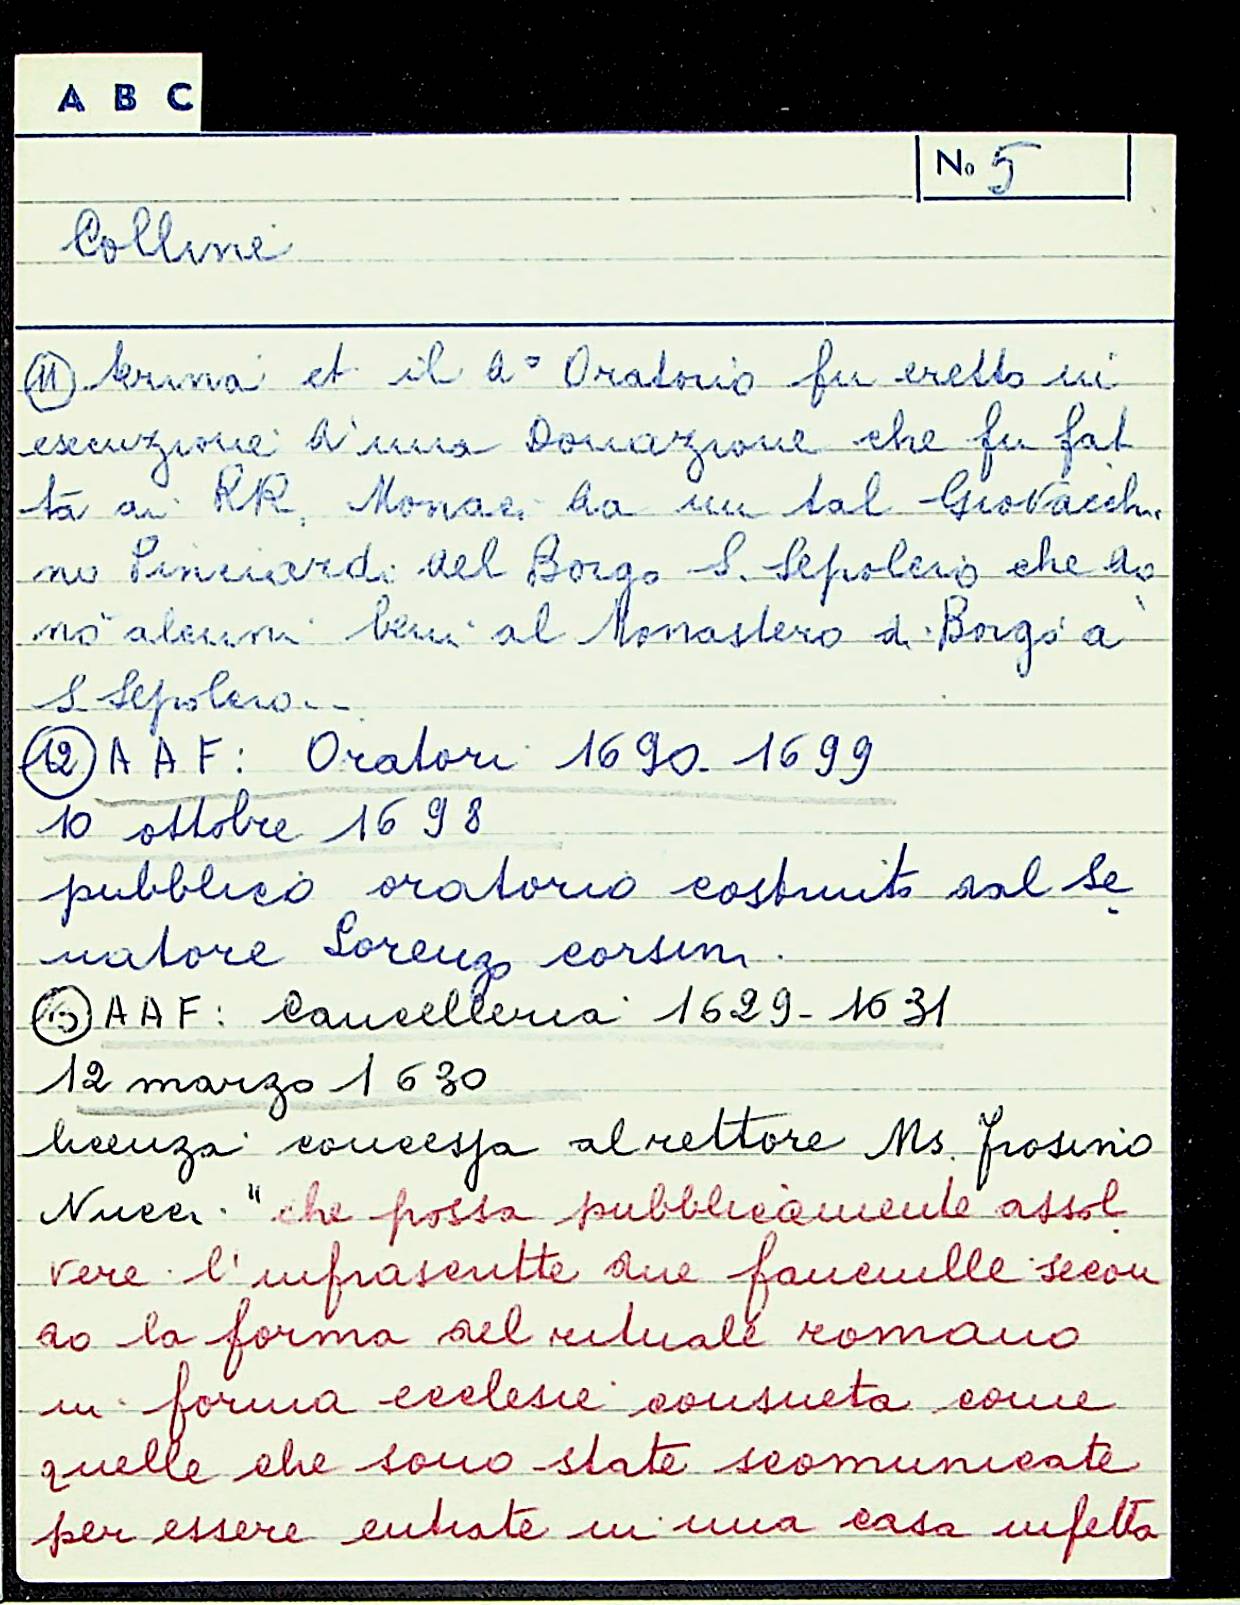 A B C
No 5
Colline
(11) terina et il d° Oratorio fu eretto in
esecuzione d'una Donazione che fu fat
ta ai RR. Monaci da un tal Giovacchi
no Pinciardi del Borgo S. Sepolcro che do
nò alcuni beni al Monastero di Borgo a
S. Sepolcro..
(12) A A F: Oratori 1690-1699
10 ottobre 1698
pubblico oratorio costruito dal Se
natore Lorenzo corsini.
(13) A A F: Cancelleria 1629-1631
12 marzo 1630
licenza concessa al rettore Ms. Frosino
Nucci "che possa pubblicamente assol
vere l'infrascritte due fanciulle secon
do la forma del rituale romano
in forma ecclesie consueta come
quelle che sono state scomunicate
per essere entrate in una casa infetta